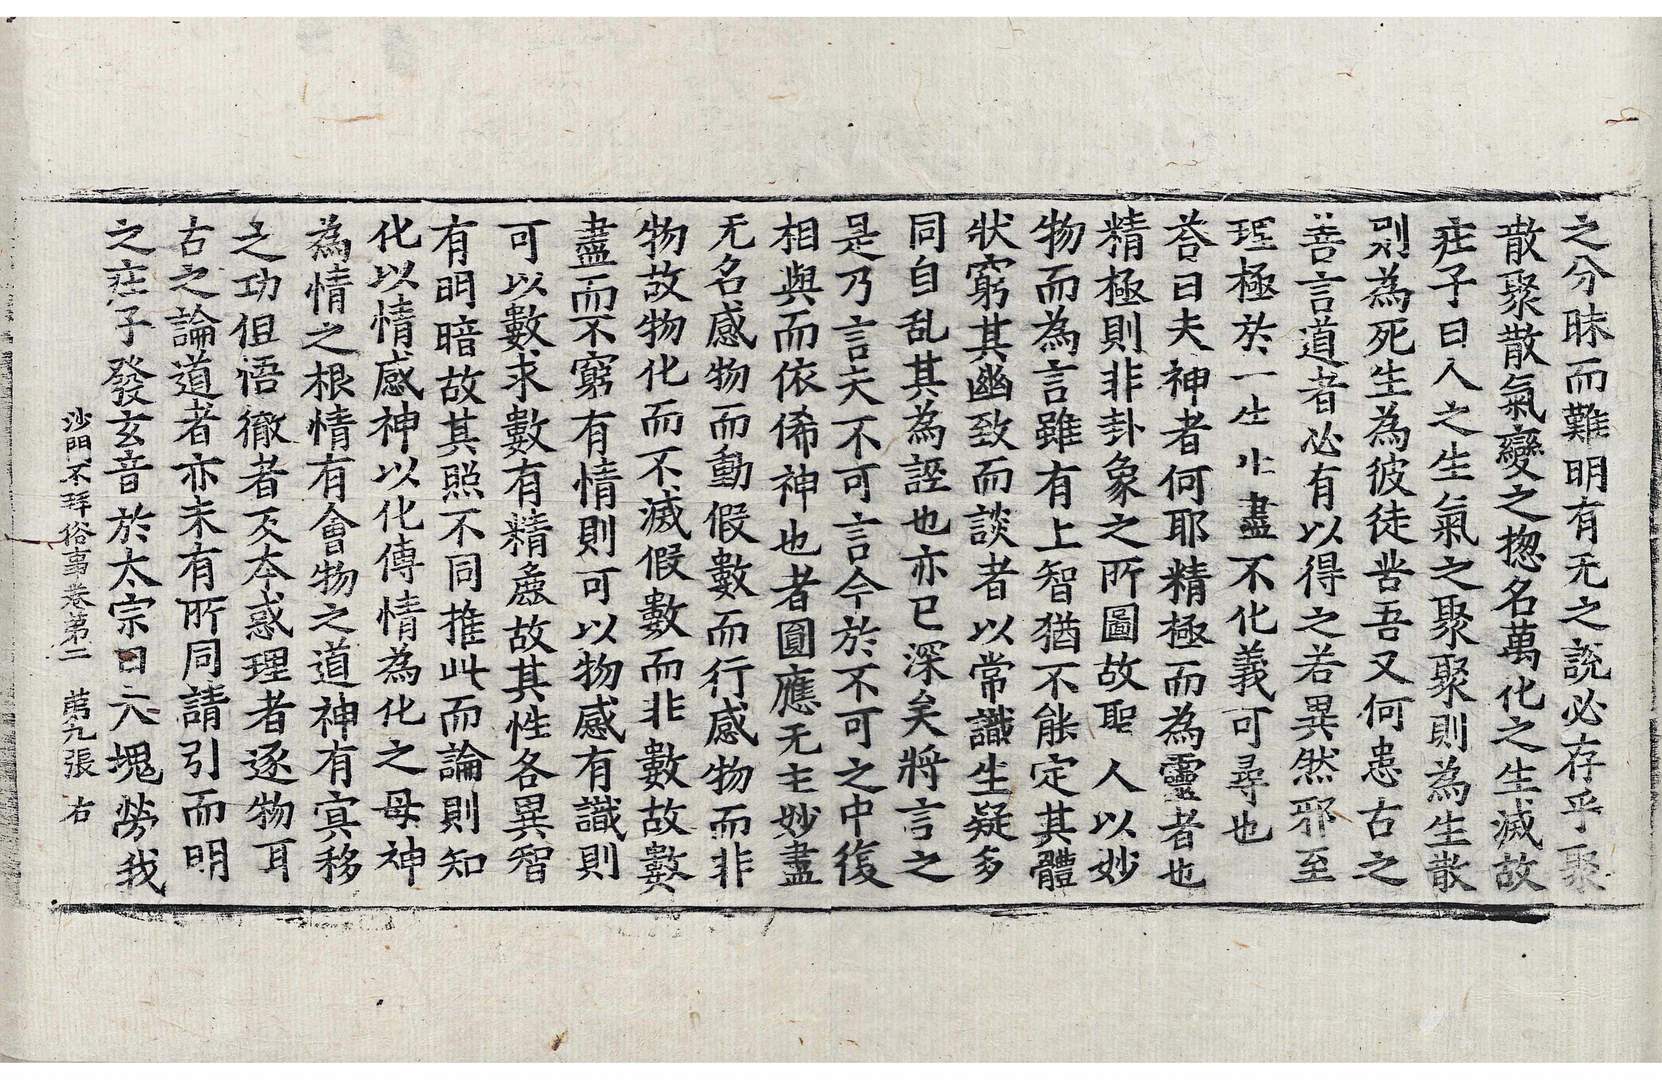 之分昧而難明有无之說必存乎聚
散聚散氣變之揔名萬化之生滅故
庄子曰人之生氣之聚聚則為生散
則為死生為彼徒苦吾又何患古之
善言道者必有以得之若異然邪至
理極於一生生盡不化義可尋也
荅曰夫神者何耶精極而為靈者也
精極則非卦象之所圖故聖人以妙
物而為言雖有上智猶不能定其體
狀窮其幽致而談者以常識生疑多
同自乱其為誣也亦已深矣將言之
是乃言夫不可言今於不可之中復
相與而依俙神也者圓應无主妙盡
无名感物而動假數而行感物而非
物故物化而不滅假數而非數故數
盡而不窮有情則可以物感有識則
可以數求數有精麁故其性各異智
有明暗故其照不同推此而論則知
化以情感神以化傳情為化之母神
為情之根情有會物之道神有冥移
之功但悟徹者反本惑理者逐物耳
古之論道者亦未有所同請引而明
之庄子發玄音於太宗曰大塊勞我
沙門不拜俗事卷第二 苐九張 右